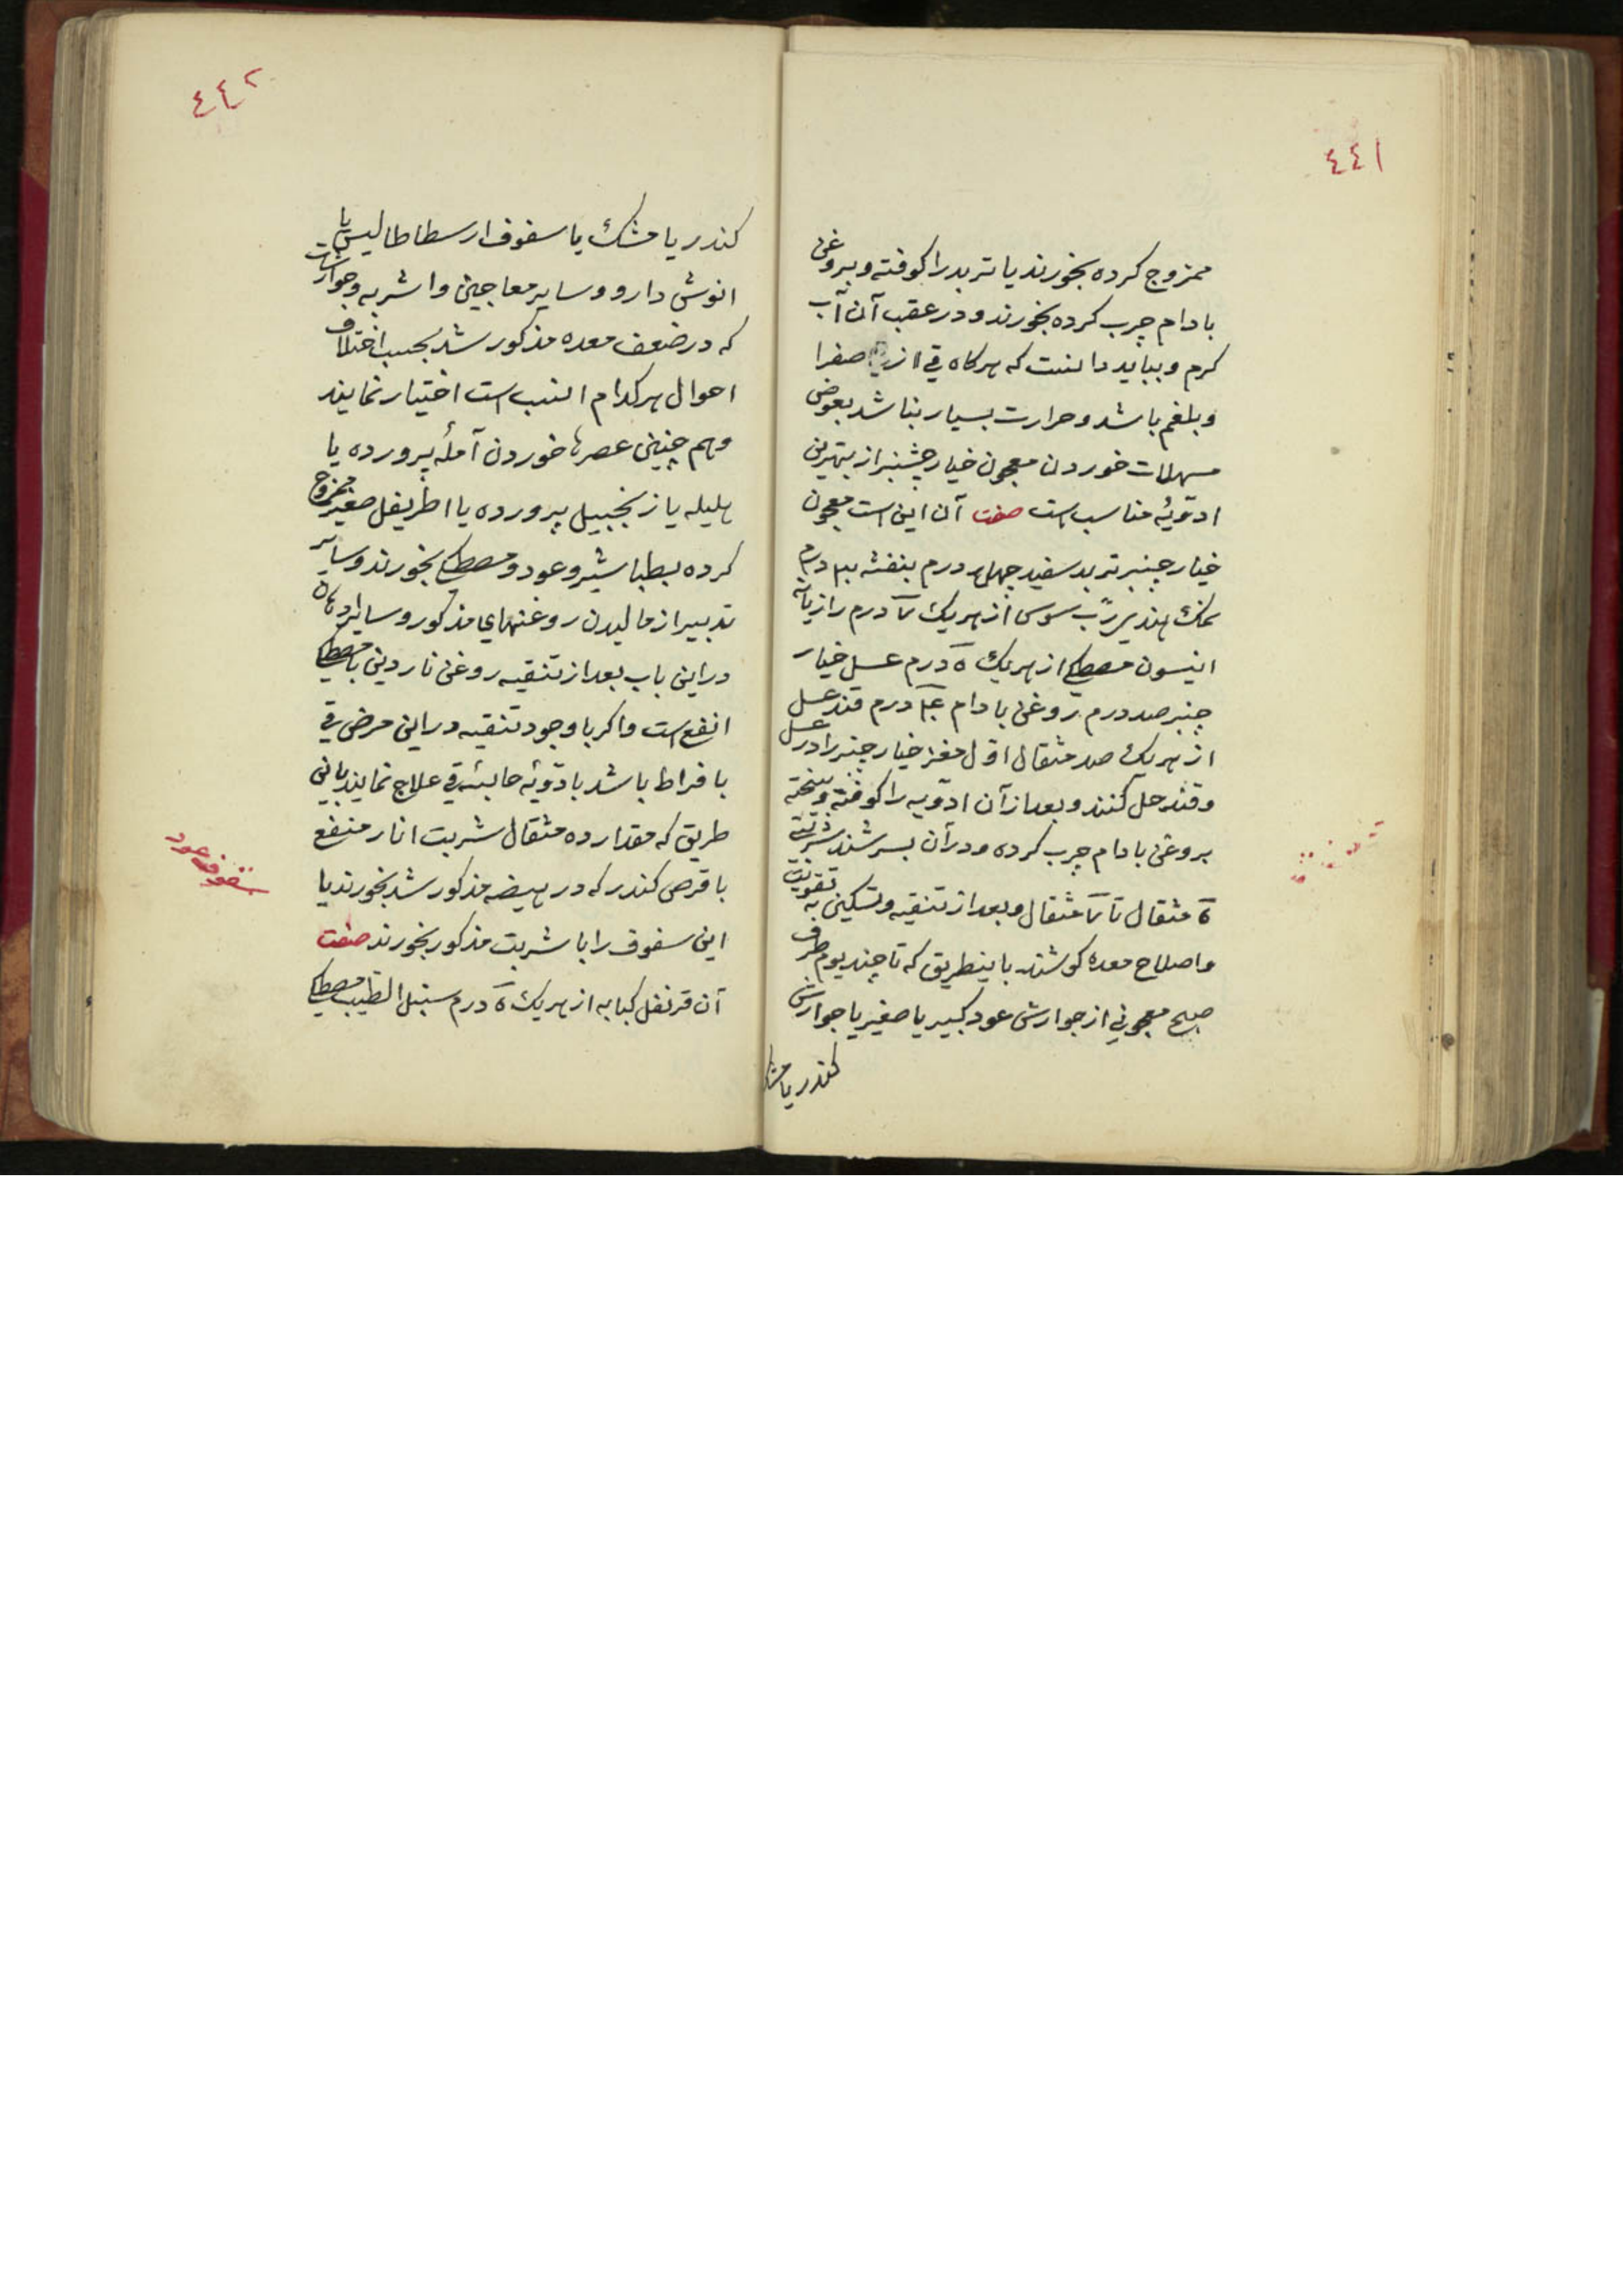 ٤٤١
ممزوج کرده بخورند یا تربد را کوفته و بروغن
بادام چرب کرده بخورند و در عقب آن آب
کرم و بباید دانست که هرکاه قی از صفرا
و بلغم باشد و حرارت بسیار نباشد بعوض
مسهلات خوردن معجون خیارچنبر از بهترین
ادویهٔ مناسب است صفت آن این است معجون
خیار جنبر تربد سفید چهل درم بنفشه درم
نمک هندی رب سوس از هر یک درم رازیانه
انیسون مصطکی از هر یک ۵ درم عسل خیار
جنبر صد درم روغن بادام درم قند عسل
از هر یک صد مثقال اول مغز خیار جنبر را در عسل
و قند حل کنند و بعد از آن ادویه را کوفته و بیخته
بروغن بادام چرب کرده و در آن بسرشند شربتی
۵ مثقال تا مثقال و بعد از تنقیه و تسکین به تقویت
و اصلاح معده کوشند باینطریق که تا چند یوم طرف
صبح معجونی از جوارش عود کبیر یا صغیر یا جوارش
کندر یا مشک
٤٤٢
کندر یا مشک یا سفوف ارسطاطالیس یا
انوش دارو و سایر معاجین و اشربه و جوارشات
که در ضعف معده مذکور شد بحسب اختلاف
احوال هر کدام انسب است اختیار نمایند
و هم چنین عصرها خوردن آملهٔ پرورده یا
هلیله یا زنجبیل پرورده یا اطریفل صغیر ممزوج
کرده بطباشیر و عود و مصطکی بخورند و سایر
تدبیر از مالیدن روغنهای مذکور و سایر ادهان
در این باب بعد از تنقیه روغن ناردین با مصطکی
انفع است و اکر با وجود تنقیه در این مرض قی
بافراط باشد بادویهٔ حابسهٔ قی علاج نمایند باین
طریق که مقدار ده مثقال شربت انار منفع
با قرص کندر که در هیضه مذکور شد بخورند یا
این سفوف را با شربت مذکور بخورند صفت
آن قرنفل کبابه از هر یک ۵ درم سنبل الطیب مصطکی
سفوف عود